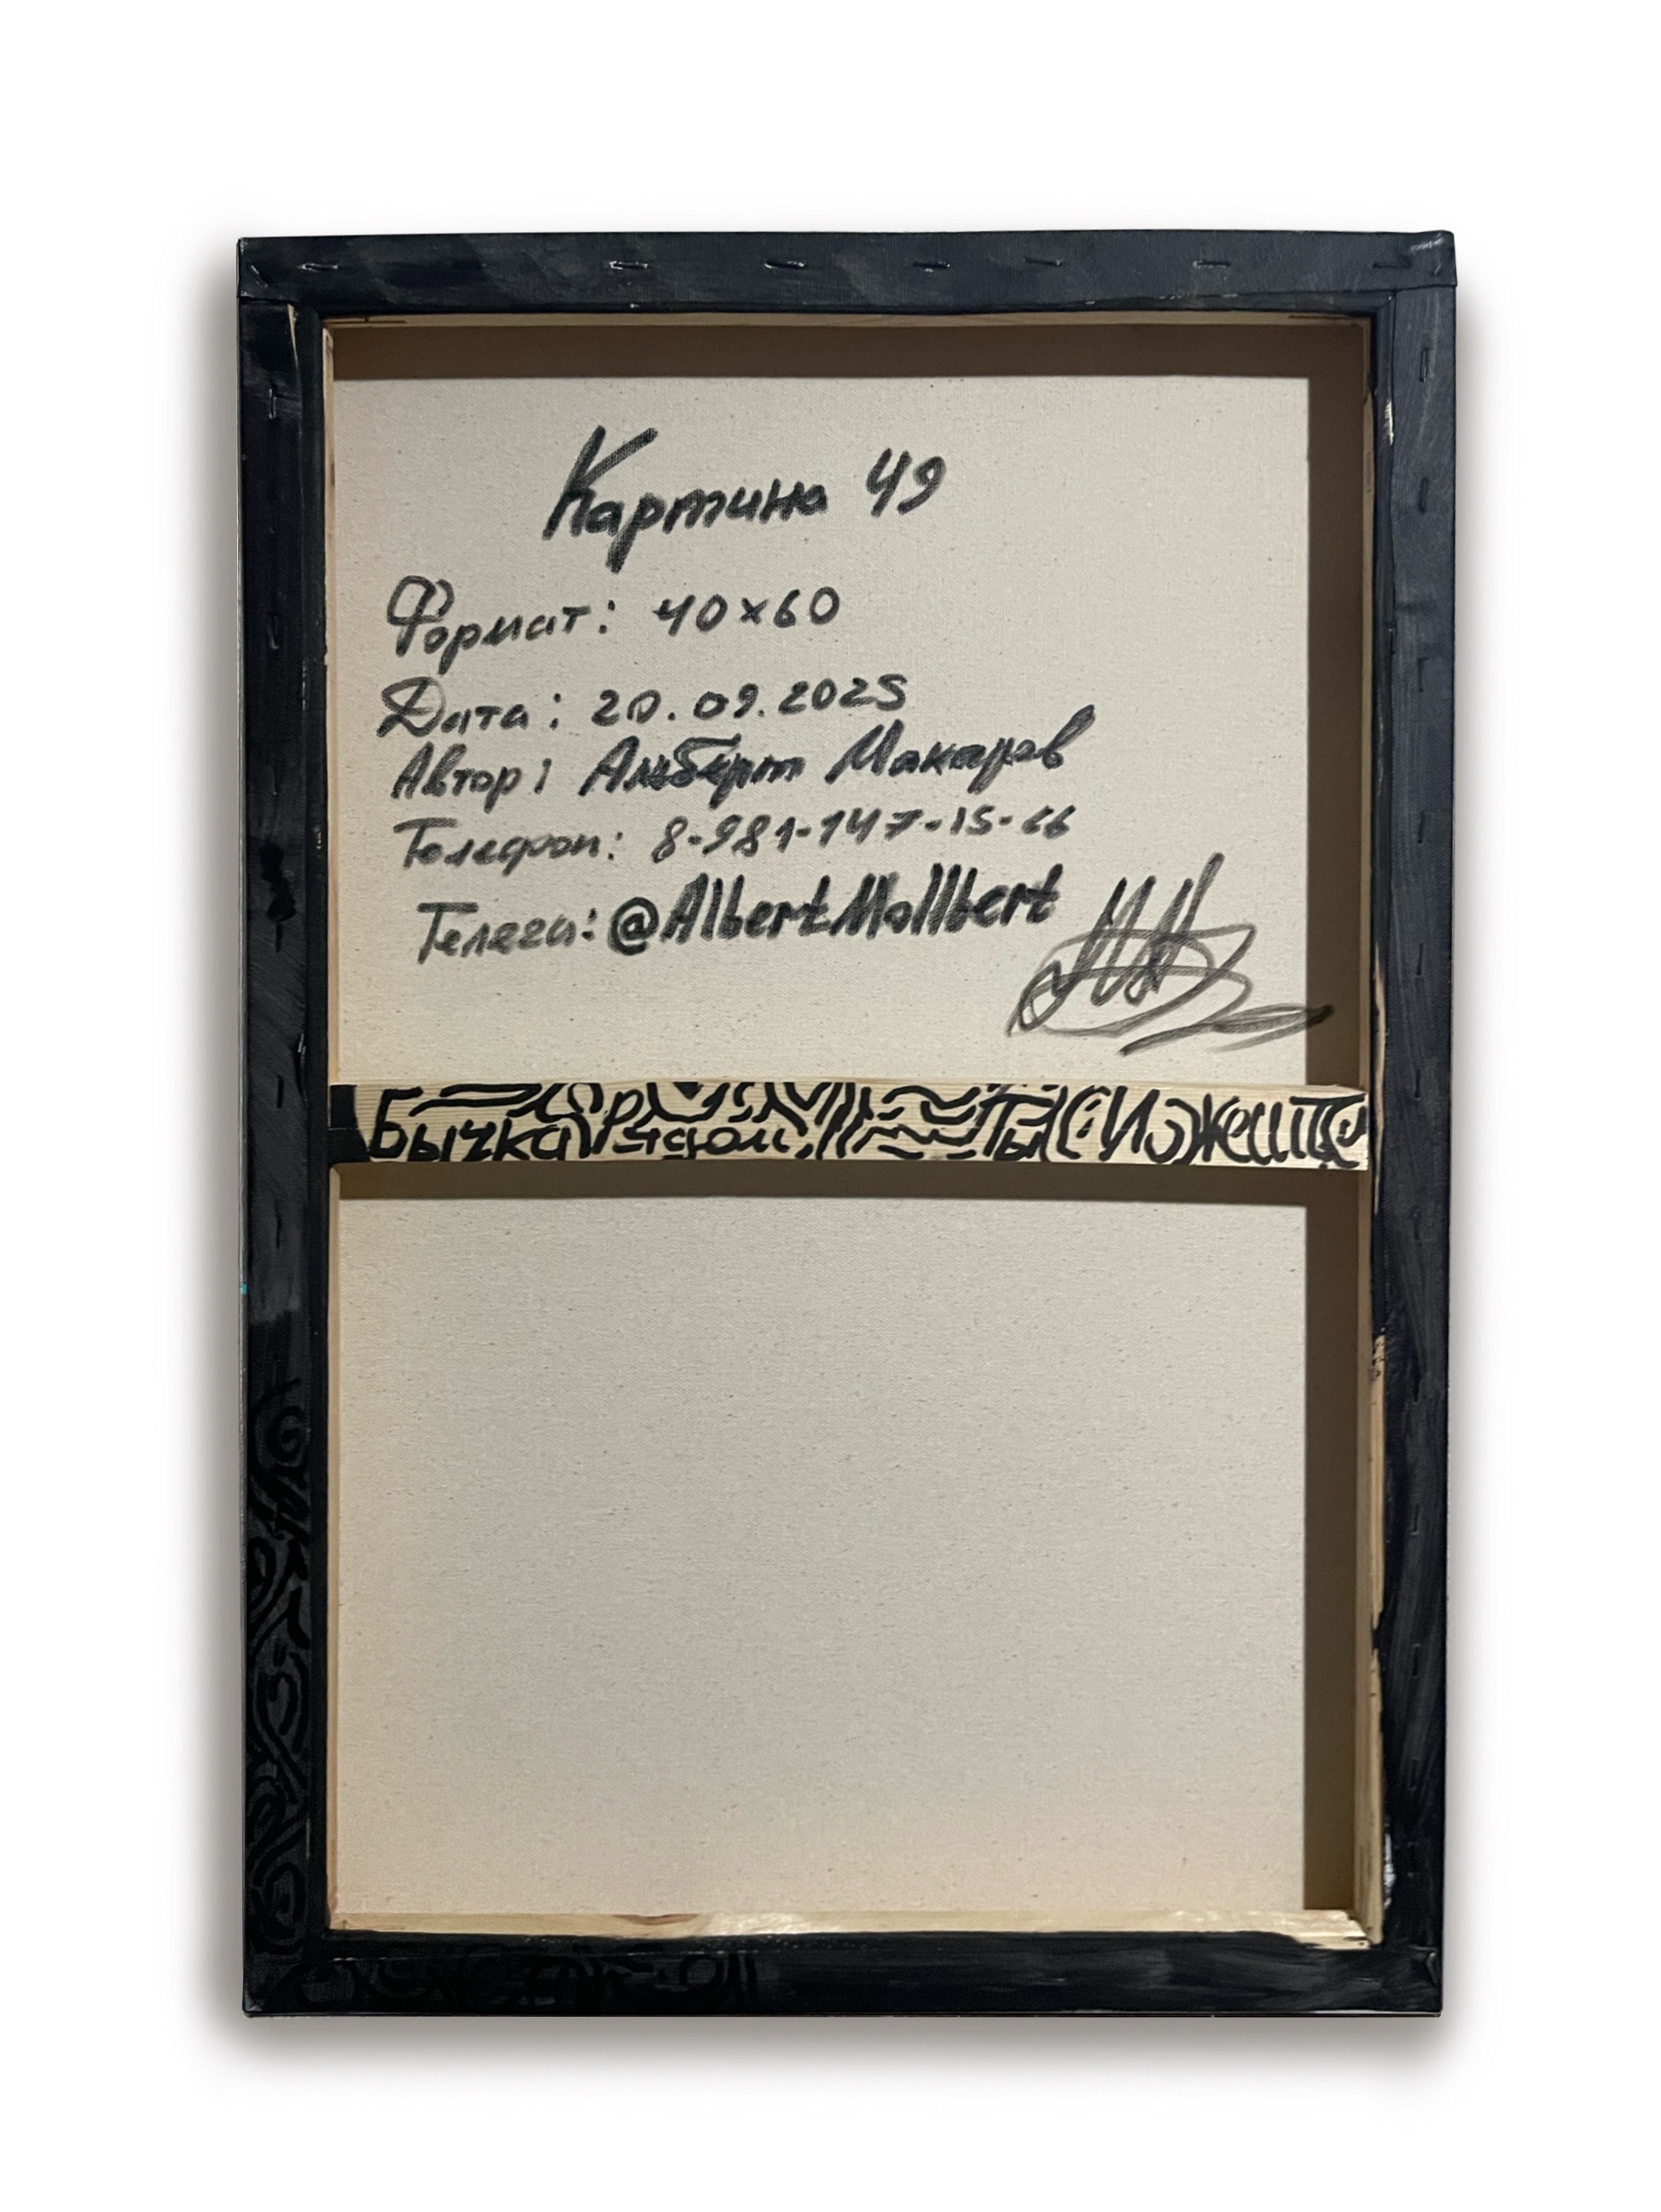 Картина 49
Формат: 40×60
Дата: 20.09.2025
Автор: Альберт Макаров
Телефон: 8-981-147-15-66
Телега: @AlbertMollbert
Бычка Рядом Ты